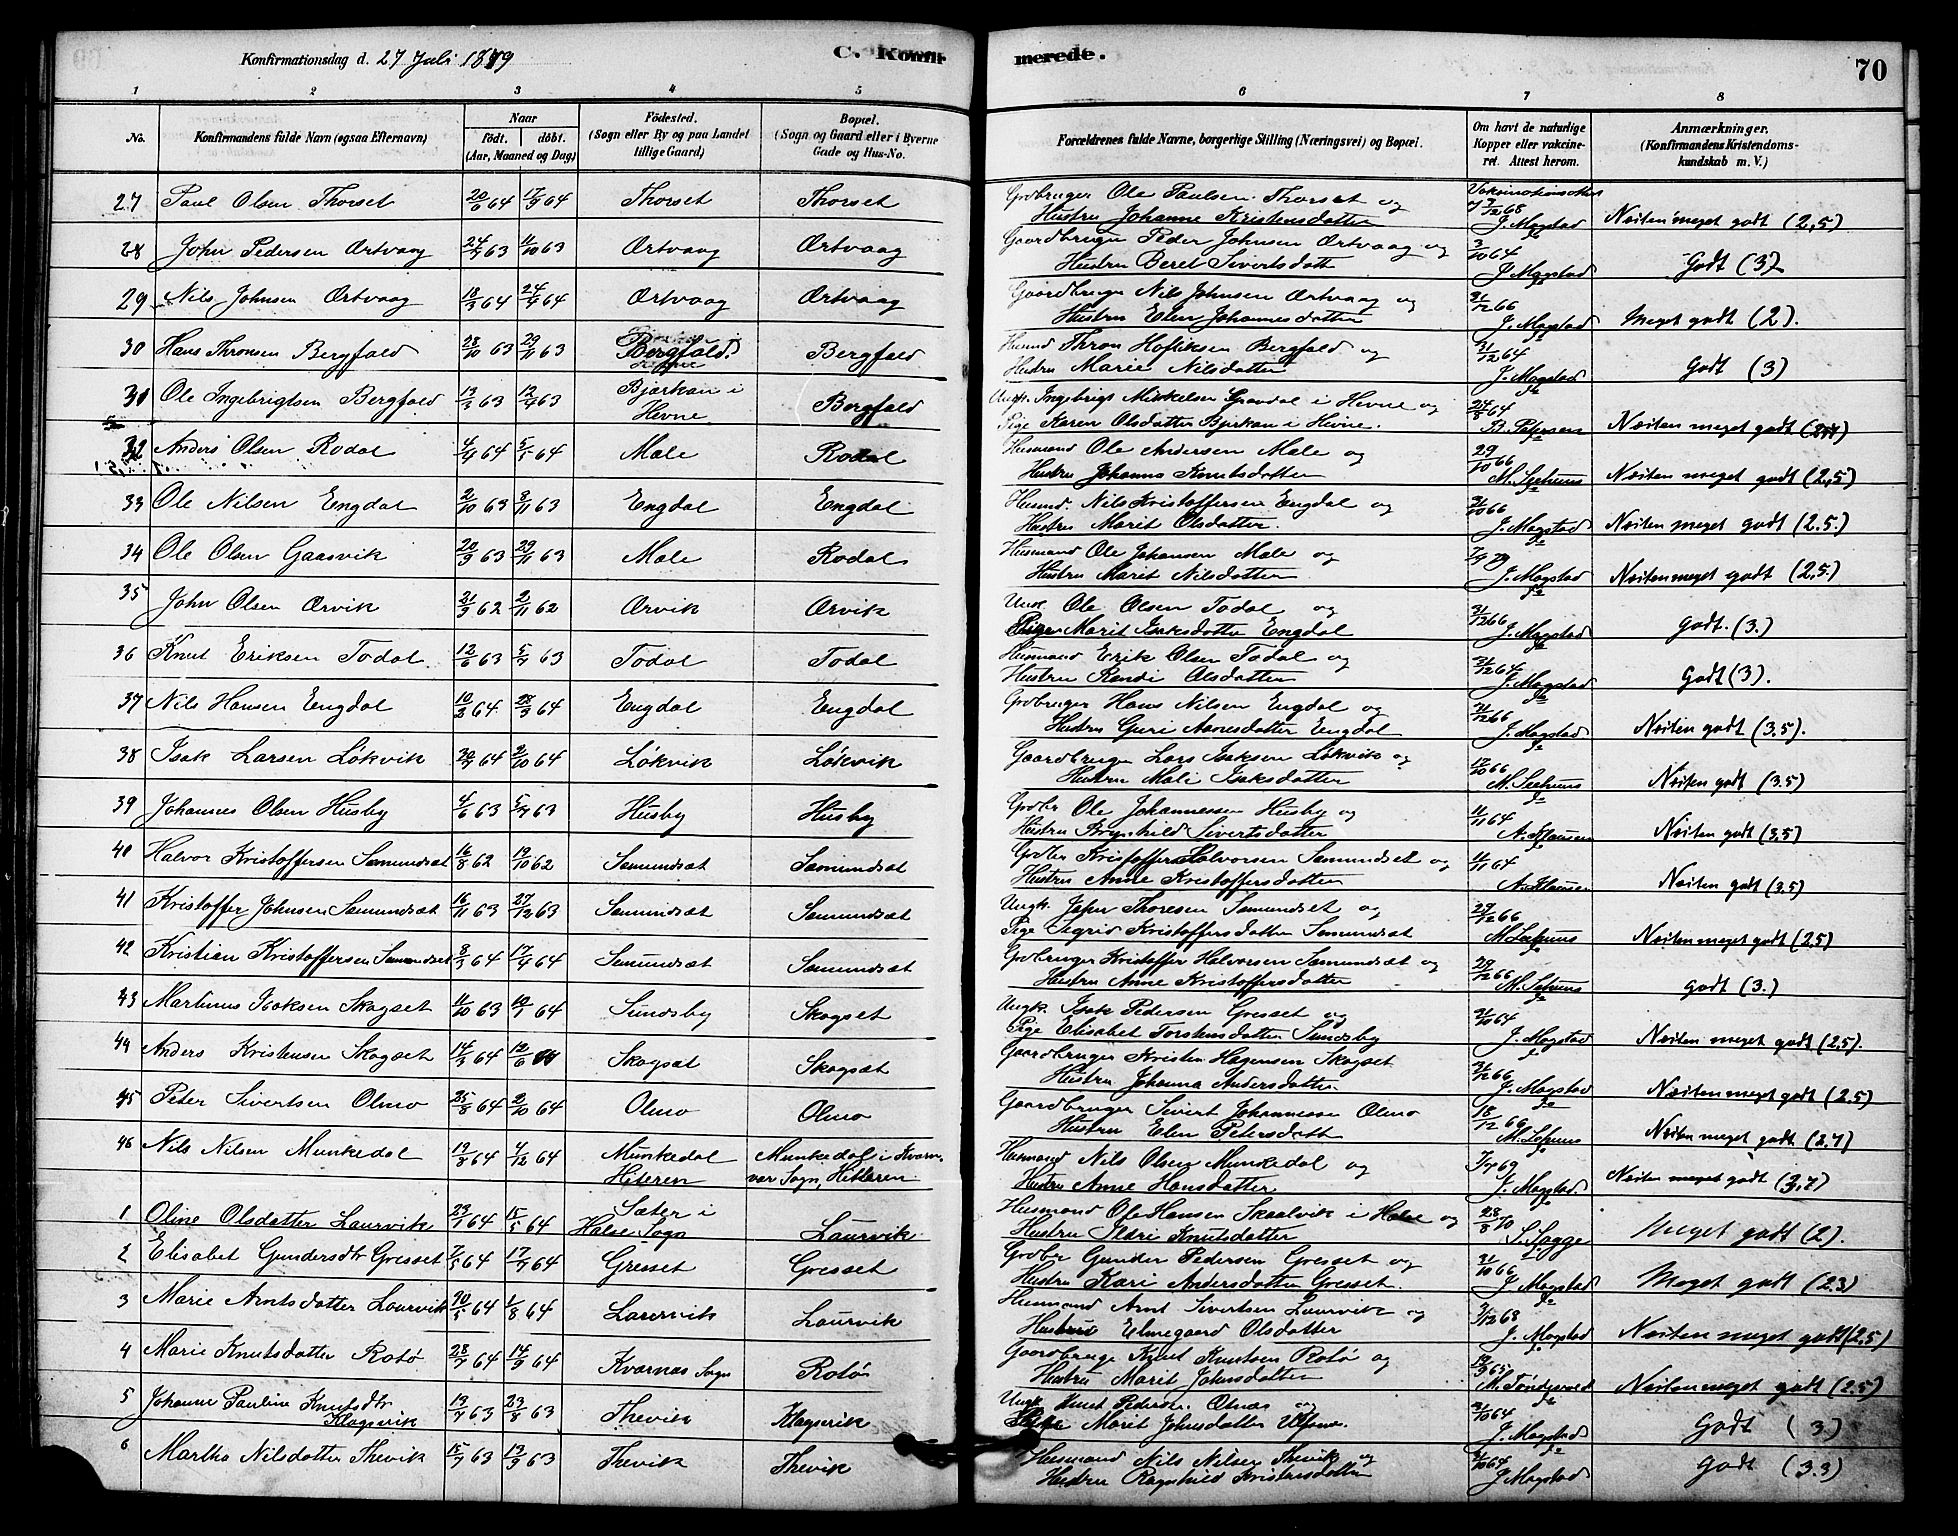 Konfirmationsdag d. 27 Juli 1879
C. Konfirmerede.
70
1 2 3 4 5 6 7 8
No. Konfirmandens fulde Navn (ogsaa Efternavn) Naar født. døbt. (Aar, Maaned og Dag) Fødested. (Sogn eller By og paa Landet tillige Gaard) Bopæl. (Sogn og Gaard eller i Byerne Gade og Hus-No. Forældrenes fulde Navne, borgerlige Stilling (Næringsvei) og Bopæl. Om havt de naturlige Kopper eller vakcineret. Attest herom. Anmærkninger. (Konfirmandens Kristendomskundskab m. V.)
27 Paul Olsen Thorset 20/6 64 17/9 64 Thorset Thorset Grdbruger Ole Paulsen Thorset og Hustru Johanne Kristensdatter 3/12 68 J. Magstad Næsten meget godt (2,5)
28 John Pedersen Ørtvaag 24/7 63 11/10 63 Ørtvaag Ørtvaag Gaardbruger Peder Johnsen Ørtvaag og Hustru Beret Sivertsdatt 3/10 64 J. Magstad Godt (3)
29 Nils Johnsen Ørtvaag 18/3 64 24/4 64 Ørtvaag Ørtvaag Gaardbruger Nils Johnsen Ørtvaag og Hustru Elen Johannesdatter 31/12 66 J. Magstad Meget godt (2).
30 Hans Thronsen Bergfald 28/10 63 29/11 63 Bergfald Bergfald Husmd Thron Hofliksen Bergfald og Hustru Marie Nilsdatter 31/12 64 J. Magstad Godt (3)
31 Ole Ingebrigtsen Bergfald 13/3 63 12/4 63 Bjørkan i Hevne Bergfald Ungk. Ingebrigt Mikkelsen i Hevne og Pige Karen Olsdatter Bjørkan i Hevne. 24/8 64 B. Petersen Næsten meget godt
32 Anders Olsen Rodal 4/4 64 5/5 64 Male Rodal Husmand Ole Andersen Male og Hustru Johanna Knutsdatter 29/10 66 Næsten meget godt (2,5)
33 Ole Nilsen Engdal 2/10 63 8/11 63 Engdal Engdal Husmd. Nils Kristoffersen Engdal og Hustru Marit Olsdatter. 31/10 66 J. Magstad Næsten meget godt (2.5.)
34 Ole Olsen Gaasvik 20/9 63 29/11 63 Male Rodal Husmand Ole Johansen Male og Hustru Marit Nilsdatter J. Magstad Næsten meget godt (2,5.)
35 John Olsen Ørvik 21/9 62 2/11 62 Ørvik Ørvik Ungk Ole Olsen Todal og Pige Marit Isaksdatter Engdal 31/12 66 J. Magstad Godt. (3.)
36 Knut Eriksen Todal 12/6 63 5/7 63 Todal Todal Husmand Erik Olsen Todal og Hustru Randi Olsdatter 31/12 64 J. Magstad Godt (3).
37 Nils Hansen Engdal 10/2 64 28/3 64 Engdal Engdal Grdbruger Hans Nilsen Engdal og Hustru Guri Arnesdatter Engdal 31/12 66 J. Magstad Næsten godt (3.5).
38 Isak Larsen Løkvik 30/7 64 2/10 64 Løkvik Løkvik Gaardbruger Lars Isaksen Løkvik og Hustru Mali Isaksdatter 12/10 66 Næsten godt (3.5)
39 Johannes Olsen Husby 4/6 63 5/7 63 Husby Husby Grdbr Ole Johannesen Husby og Hustru Brynhild Sivertsdatter 11/11 64 A. Klausen Næsten godt (3,5)
40 Halvor Kristoffersen Samundsæt 16/8 62 19/10 62 Samundsæt Samundsæt Grdbr Kristoffer Halvorsen Samundset og Hustru Anne Kristoffersdatter 11/11 64 A. Klausen Næsten godt (3.5)
41 Kristoffer Johnsen Samundsæt 16/11 63 27/12 63 Samundsæt Samundsæt Ungk. John Thoresen Samundset og Pige Sigrid Kristoffersdatter Samundsæt 29/12 66 Næsten meget godt (2,5)
42 Kristian Kristoffersen Samundset 8/3 64 17/4 64 Samundsæt Samundsæt Grdbruger Kristoffer Halvorsen Samundsæt og Hustru Anne Kristoffersdatter 29/12 66 Godt (3.)
43 Martinus Isaksen Skogset 11/10 63 10/1 64 Sundsby Skogset Ungk. Isak Pedersen Gresset og Pige Elisabet Torstensdatter Sundsby 31/10 64 J. Magstad Næsten meget godt (2,5).
44 Anders Kristensen Skogset 14/3 64 12/6 64 Skogsæt Skogsæt Gaardbruger Kristen Hagensen Skogset Hustru Johanna Andersdatter 31/12 66 J. Magstad Næsten meget godt (2.5)
45 Peter Sivertsen Olmo 25/8 64 2/10 64 Olmo Olmo Gaardbruger Sivert Johannesen Olmo Hustru Elen Petersdatt 18/12 66 Næsten meget godt (2.7)
46 Nils Nilsen Munkedal 19/8 64 4/12 64 Munkedal Hiteren Munkedal i Kvarnvær Sogn, Hitteren Husmand Nils Olsen Munkedal og Hustru Anne Hansdatter J. Magstad. Næsten meget godt (2,7)
1 Oline Olsdatter Laurvik 23/1 64 15/5 64 Sæter i Halse Sogn Laurvik Husmand Ole Hansen Skaalvik i Halse og Hustru Mari Knutsdatter 28/8 70 S. Sagge Meget godt (2).
2 Elisabet Gundersdtr Gresset 7/5 64 17/7 64 Gresset Gresset Grdbr Gunder Pedersen Gresset og Hustru Kari Andersdatter Gresset. 31/10 66 J. Magstad Meget godt (2.3)
3 Marie Arntsdatter Laurvik 20/5 64 1/8 64 Laurvik Laurvik Husmand Arnt Sivertsen Laurvik og Hustru Elmegaard Olsdatter 3/12 68 J. Magstad Næsten meget godt (2,5)
4 Marie Knutsdatter Rotø 28/7 64 14/9 64 Kvarnæs Sogn Rotø Gaardbruge Knut Knutsen Rotø og Hustru Marit Johnsdatter Næsten meget godt (2.5)
5 Johanne Pauline Knutsdtr Klagsvik 19/7 63 23/8 63 Thevik Klagsvik Ungk Knut Peders. Olnæs og Pige Marit Johnsdatter 31/10 64 J. Magstad Godt (3)
6 Martha Nilsdatter Thevik 15/7 63 13/9 63 Thevik Thevik Husmand Nils Nilsen Thevik og Hustru Ragnhild Kristensdatter 31/10 64 J. Magstad Godt (3.3)